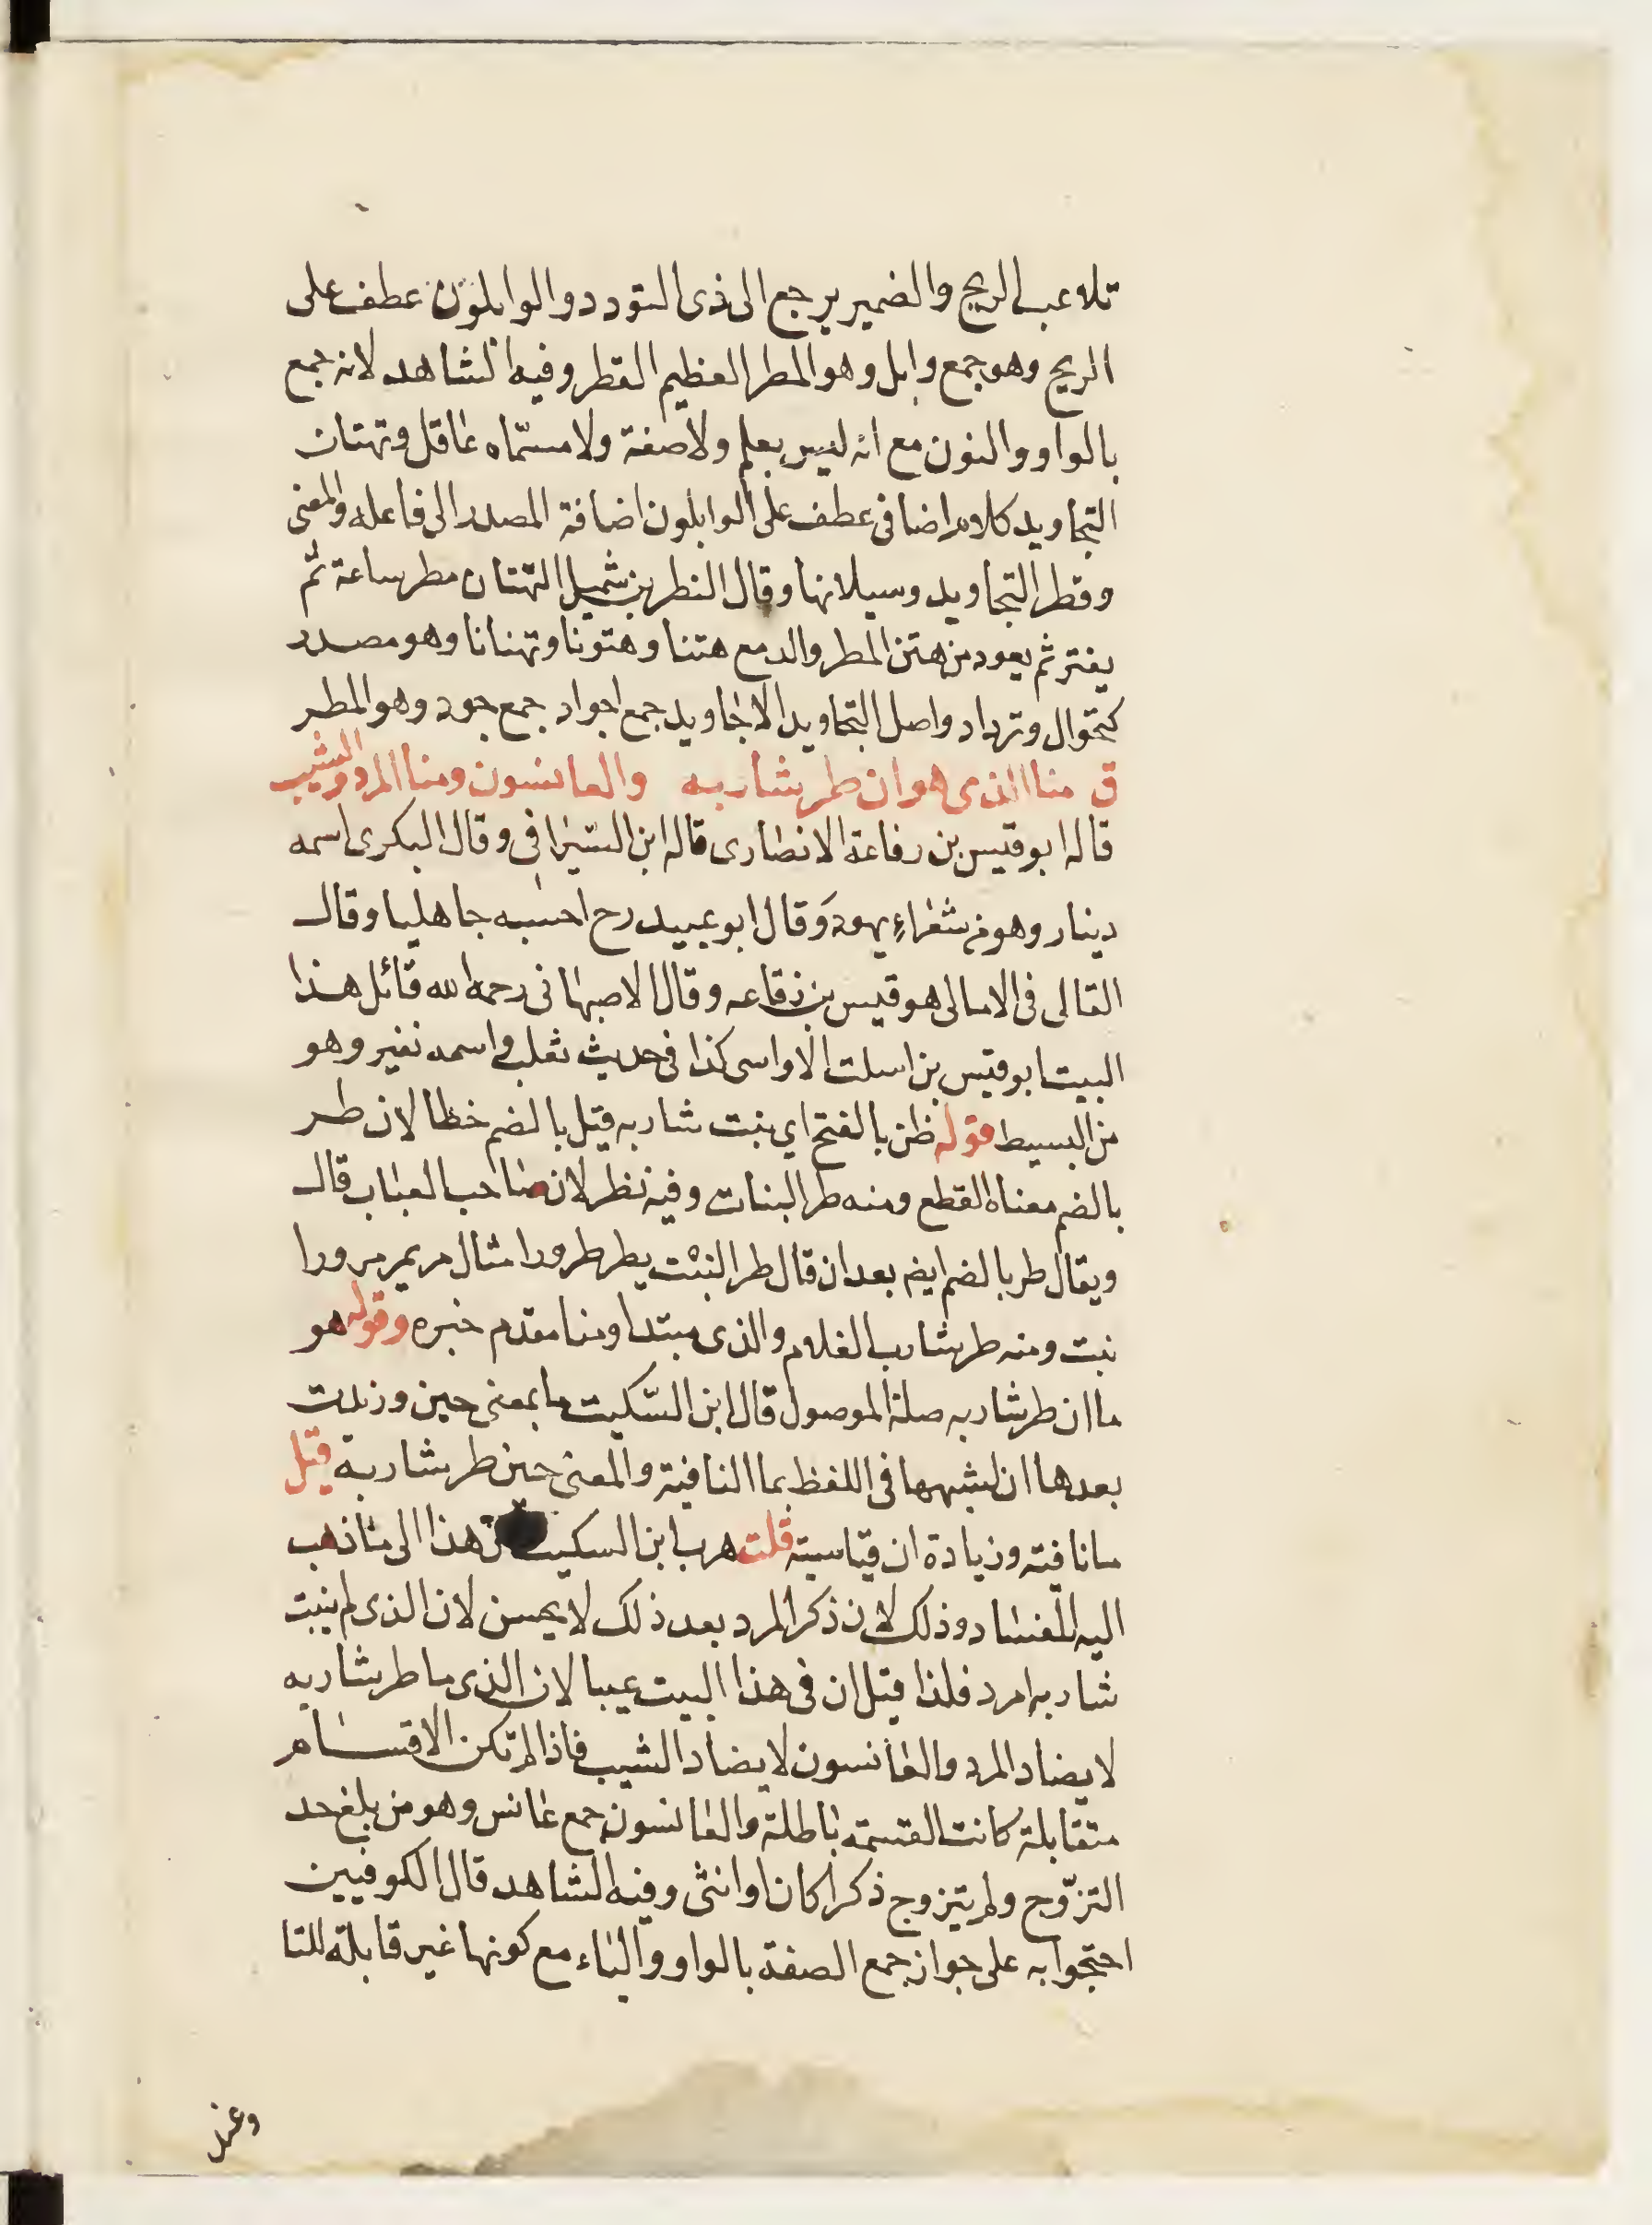 تلاعب الريح والضمير يرجع الى ذى التودد والوابلون عطف على
الريح وهو جمع وابل وهو المطر العظيم القطر وفيه الشاهد لانه جمع
بالواو والنون مع انه ليس بعلم ولا صفة ولا مسمّاه عاقل وتهتان
التجاويد كلام اضافى عطف على الوابلون اضافة المصدر الى فاعله والمعنى
وقطر التجاويد وسيلانها وقال النظر بن شميل التهتان مطر ساعة ثم
يفتر ثم يعود من هتن المطر والدمع هتنا وهتونا وتهتانا وهو مصدر
كتحوال وترداد واصل التجاويد الاجاويد جمع اجواد جمع جود وهو المطر
ق منا الذى هو ان طر شاربه والعانسون ومنا المرد والشيب
قاله ابو قيس بن رفاعة الانصارى قاله ابن السيرافى وقال البكرى اسمه
دينار وهو من شعراء يهود وقال ابو عبيد رح احسبه جاهليا وقال
القالى فى الامالى هو قيس بن رفاعه وقال الاصبهانى رحمه الله قائل هذا
البيت ابو قيس بن اسلت الاواسى كذا فى حديث ثعلب واسمه نفير وهو
من البسيط قوله طر بالفتح اي نبت شاربه قيل بالضم خطا لان طر
بالضم معناه القطع ومنه طر البنات وفيه نظر لان صاحب العباب قال
ويقال طر بالضم ايض بعد ان قال طر النبت يطر طرورا مثال مر يمر مرورا
نبت ومنه طر شارب الغلام والذى مبتدا ومنا مقدم خبره وقوله هو
ما ان طر شاربه صلة الموصول قال ابن السّكيت ما بمعنى حين وزيدت
بعدها ان لشبهها فى اللفظ بما النافية والمعنى حين طر شاربه قيل
ما نافية وزيادة ان قياسية قلت هرب ابن السكيت من هذا الى ما ذهب
اليه للفساد وذلك لان ذكر المرد بعد ذلك لا يحسن لان الذى لم ينبت
شاربه امرد فلذا قيل ان فى هذا البيت عيبا لان الذى ما طر شاربه
لا يضاد المرد والعانسون لا يضاد الشيب فاذا لم تكن الاقسام
متقابلة كانت القسمة باطلة والعانسون جمع عانس وهو من بلغ حد
التزوّج ولم يتزوج ذكرا كان او انثى وفيه الشاهد قال الكوفيين
احتجوا به على جواز جمع الصفة بالواو والياء مع كونها غير قابلة للتا
وعند